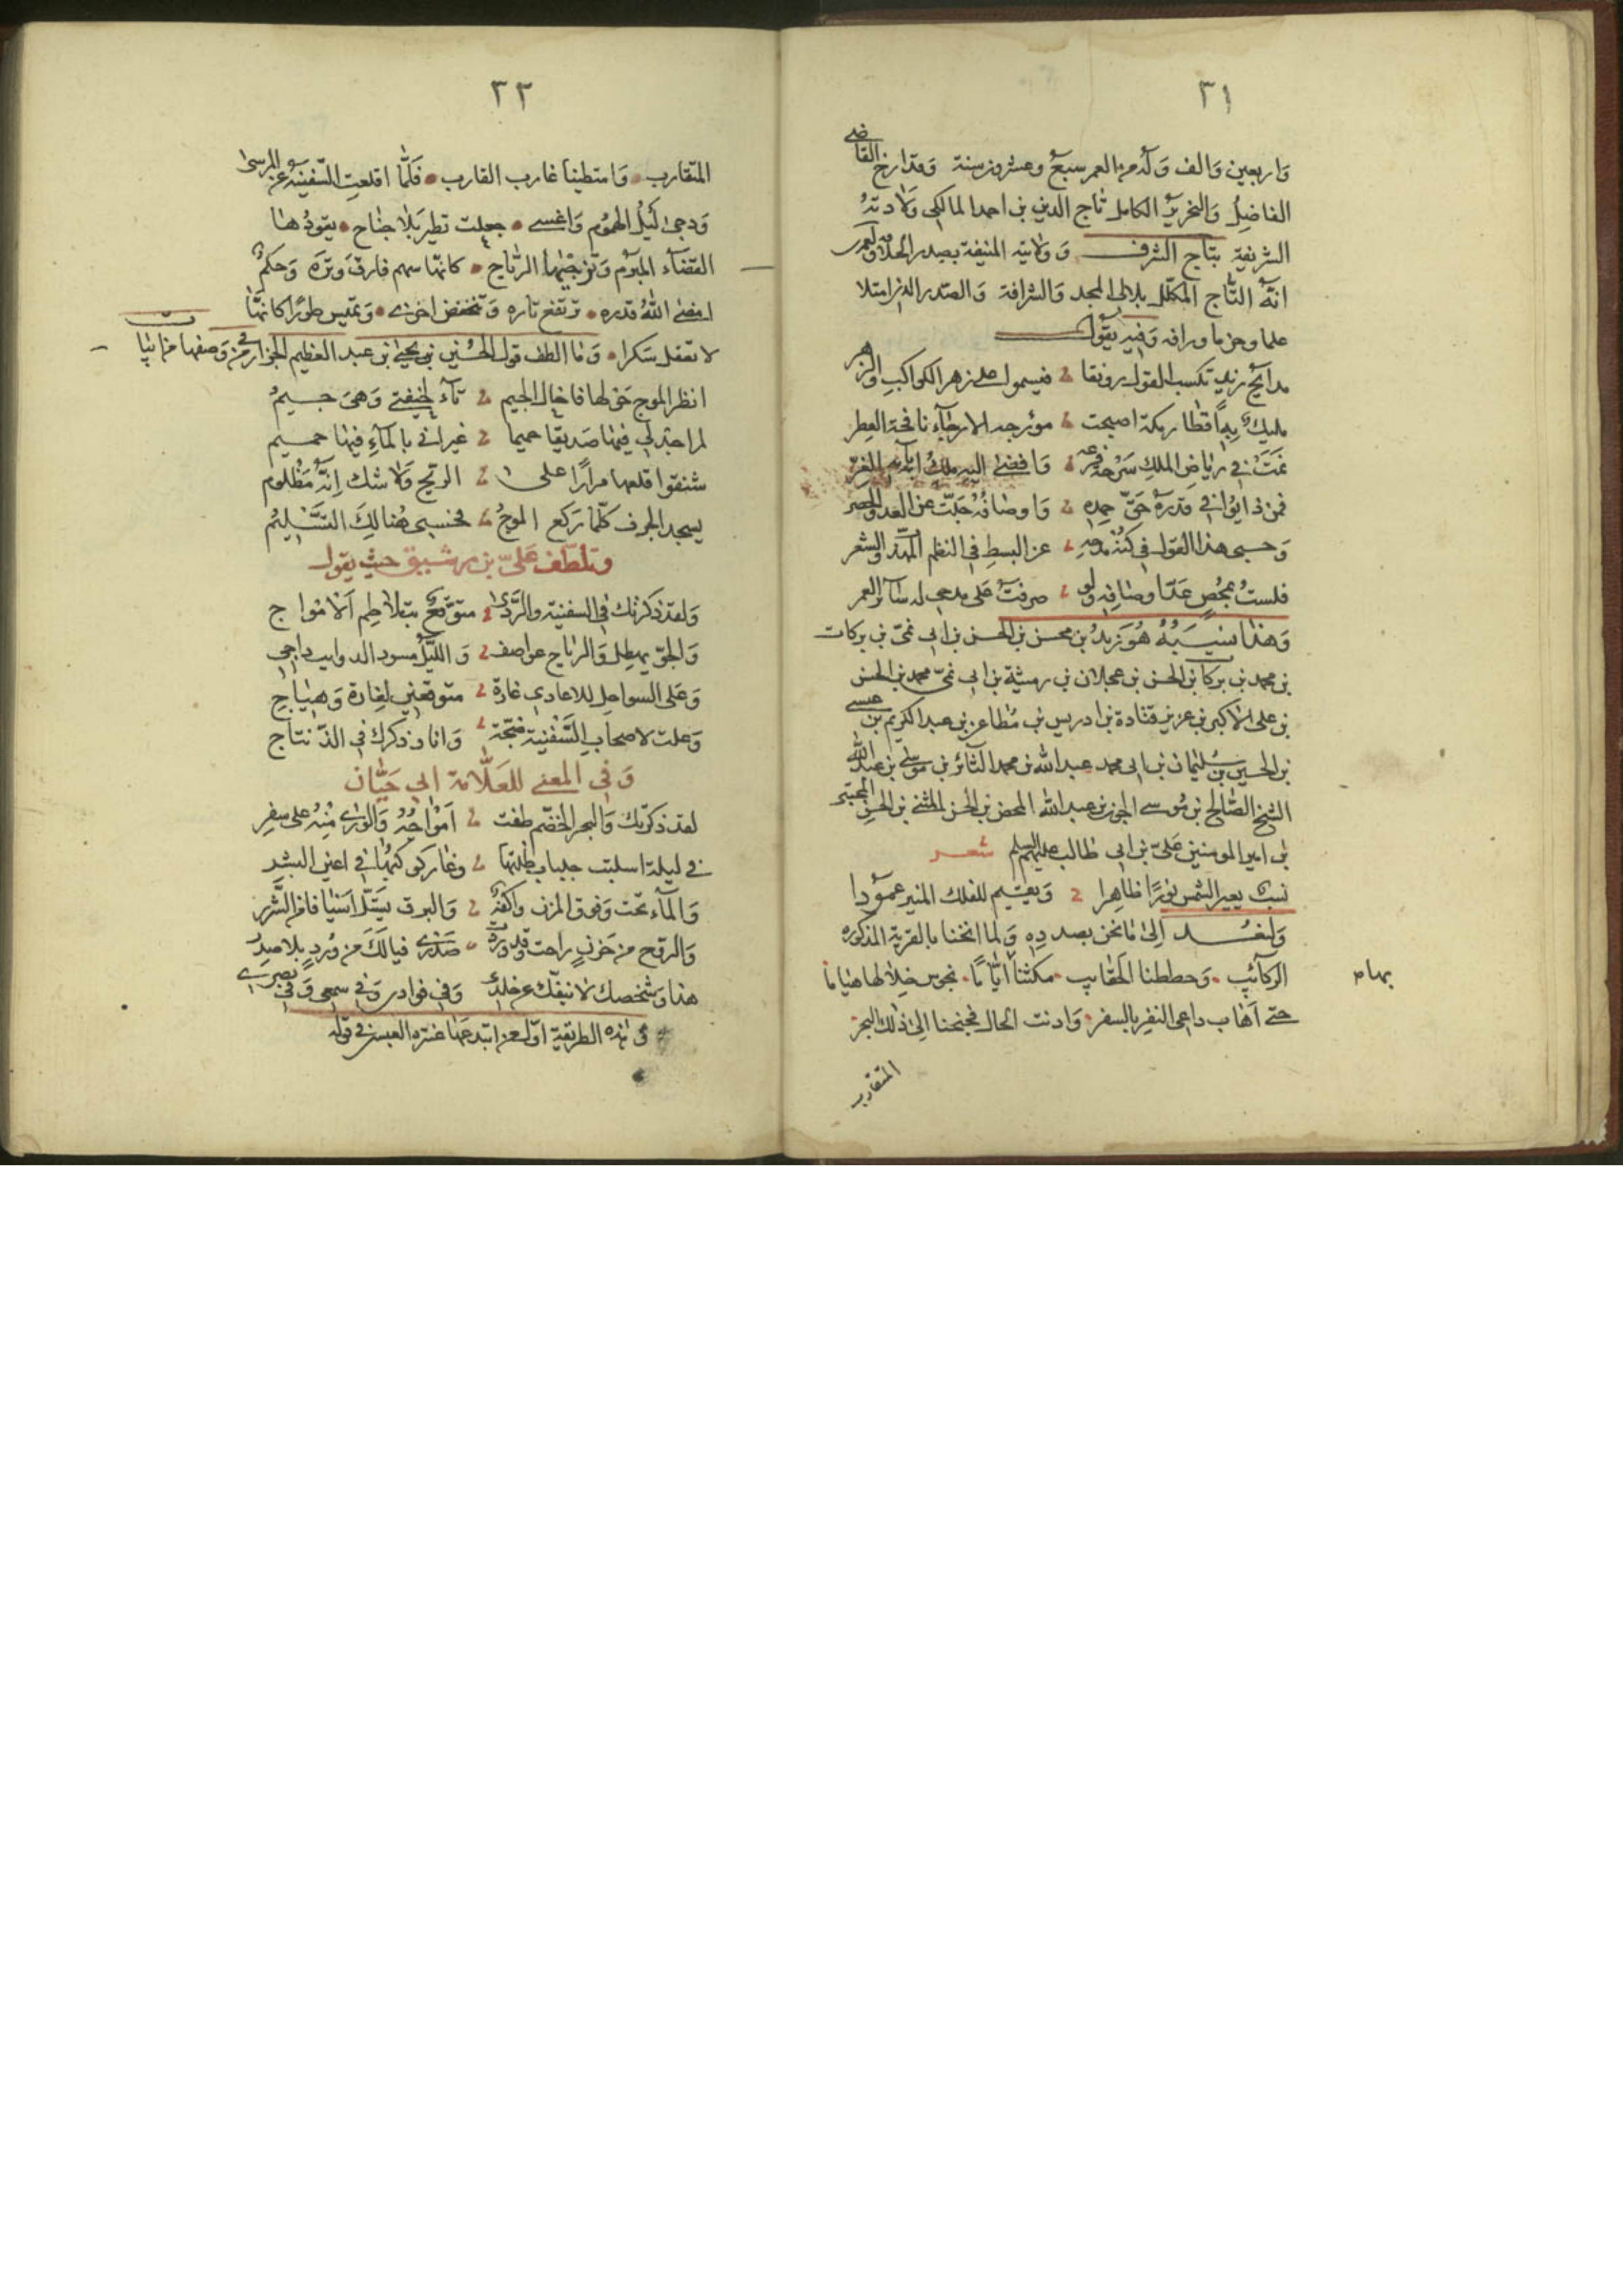 ٣١
واربعين والف وله من العمر سبع وعشرون سنة وقد ارخ القاضي
الفاضل والنحرير الكامل تاج الدين بن احمد المالكي ولادته
الشريفة بتاج الشرف وولايته المنيفة بصدر الخلافة ولعمري
انه التاج المكلل بلالى المجد والشرافة والصدر الذي امتلا
علما وحزما ورافه وفيه يقول
مدايح زيد تكسب القول رونقا فيسمو على زهر الكواكب والزهر
مليك به اقطار مكة اصبحت مؤرجه الارجآء نافحة العطر
نمت في رياض الملك سرحة فرعه وافضى اليه ملك ابآيه الغر
فمن ذا يوافي قدره حق حمده واوصافه جلت عن العد والحصر
وحسبي هذا القول في كنه مدحه عن البسط في النظم المهذب والشعر
فلست بمحص عد اوصافه ولو صرفت على مدحي له سآئر العمر
وهذا نسبه هو زيد بن محسن بن الحسن بن ابى نمي بن بركات
بن محمد بن بركات بن الحسن بن عجلان بن رميثة بن ابى نمي محمد بن الحسن
بن على الاكبر بن عزيز قتادة بن ادريس بن مطاعن بن عبد الكريم بن عيسى
بن الحسين بن سليمان بن ابى محمد عبد الله بن محمد الثآئر بن موسى بن عبد الله
الشيخ الصالح بن موسى الجون بن عبد الله المحض بن الحسن المثنى بن الحسن المجتبى
بن امير المومنين على بن ابى طالب عليهم السلم شعر
نسب يعير الشمس نورا ظاهرا ويقيم للفلك المنير عمودا
ولنعد الى ما نحن بصدده ولما انخنا بالقرية المذكوره
الركآئب وحططنا الحقايب مكثنا اياما نجوس خلالها هياما
بهام
حتى اهاب داعى النفر بالسفر وادنت الحال فجنحنا الى ذلك البحر
المتقارب
٣٢
المتقارب وامتطينا غارب القارب فلما اقلعت السفينه عن المرسى
ودجى ليل الهموم واغسى جعلت تطير بلا جناح يقودها
القضآء المبرم وتزجيها الرياح كانها سهم فارق وتره وحكم
امضى الله قدره ترتفع تاره وتنخفض اخرى وتميس طورا كانها
لا تعقل سكرا وما الطف قول الحسين بن يحيى بن عبد العظيم الجزار في وصفها من ابيات
انظر الموج حولها فاخال الجيم تآء لخفتي وهى جيم
لم اجد لي فيها صديقا حميما غير اني بالمآء فيها حميم
شنقوا قلعها مرارا على الريح ولا شك انه مظلوم
يسجد الجرف كلما ركع الموج فحسبى هنالك التسليم
وتلطف علي بن رشيق حيث يقول
ولقد ذكرتك في السفينة والردى متوقع بتلاطم الامواج
والجو يهطل والرياح عواصف والليل مسود الذوايب داجي
وعلى السواحل للاعادي غارة متوقعين لغارة وهياج
وعلت لاصحاب السفينة ضجة وانا وذكرك في الذ تناج
وفي المعنى للعلامة ابي حيان
لقد ذكرتك والبحر الخضم طغت امواجه والورى منه على سفر
في ليلة اسلبت جلباب ظلمتها وغار كوكبها في اعين البشر
والمآء تحت وفوق المزن واكفه والبرق يستل اسيافا من الشرر
والروح من حزن راحت وقد وردت صدرى فيالك من ورد بلا صدر
هذا وشخصك لا ينفك عن خلدى وفي فوادى وفي سمعي وفي بصرى
هذه الطريقة اول من ابتدعها عنتره العبسي في قوله